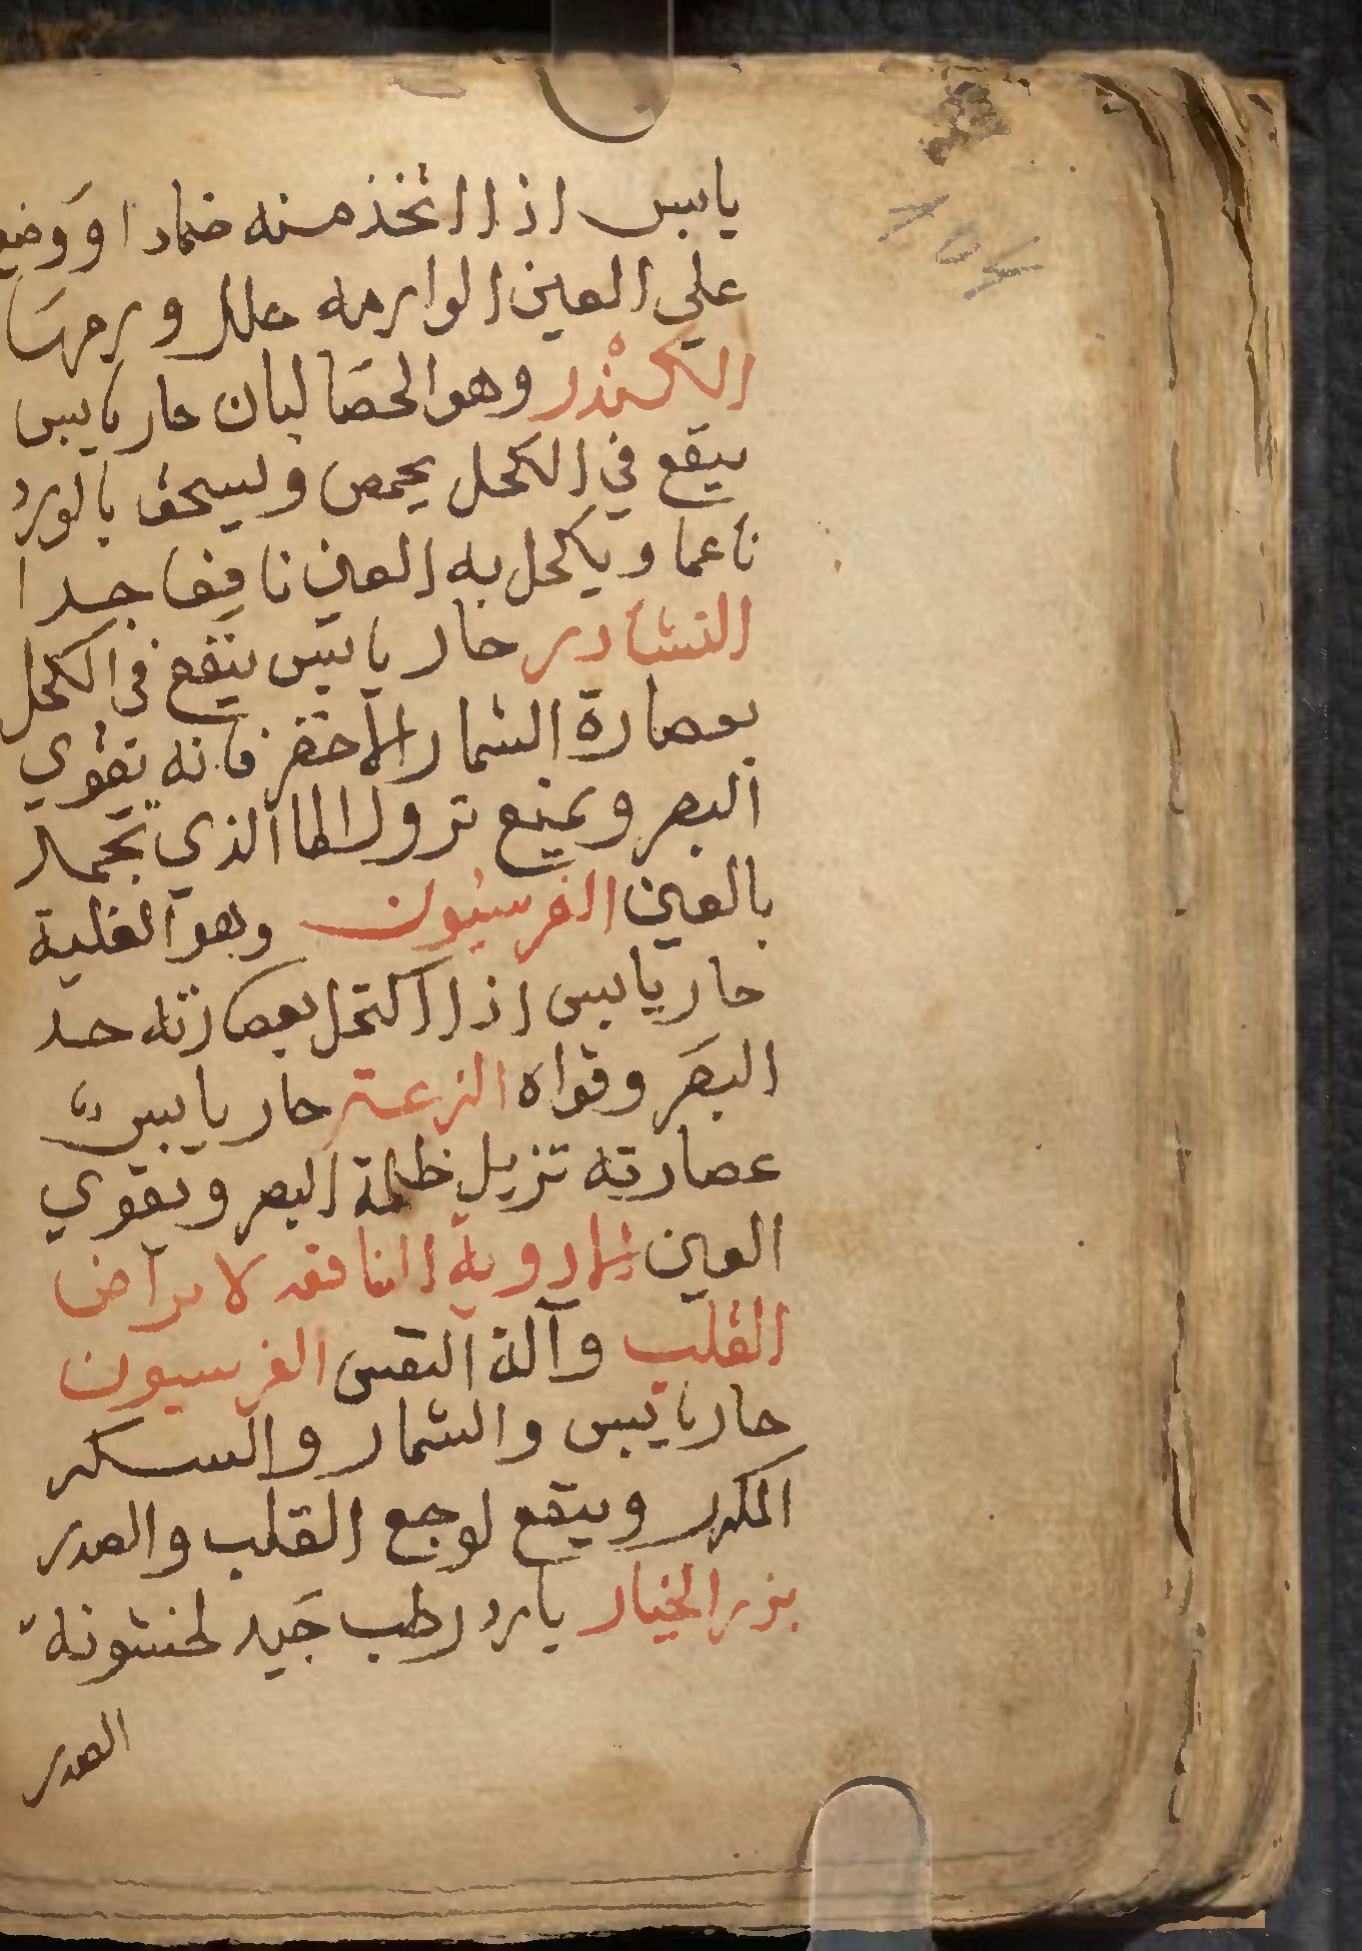 يابس اذا اتخذ منه ضمادا ووضع
علي العين الوارمه حلل ورمها
الكندر وهو الحصا لبان حار يابس
ينفع في الكحل يحمص ويسحق بالورد
ناعما ويكحل به العين نافعا جدا
النشادر حار يابس ينفع في الكحل
بعصارة الشمار الاخضر فانه يقوي
البصر ويمنع نزول الما الذي يحصل
بالعين الفرسيون وهو الغلية
حار يابس اذا اكتحل بعصارته حد
البصر وقواه الزعتر حار يابس
عصارته تزيل ظلمة البصر وتقوي
العين الادوية النافعه لامراض
القلب وآلة النفس الفرسيون
حار يابس والشمار والسكر
المكرر وينفع لوجع القلب والصدر
بزر الخيار بارد رطب جيد لخشونة
الصدر